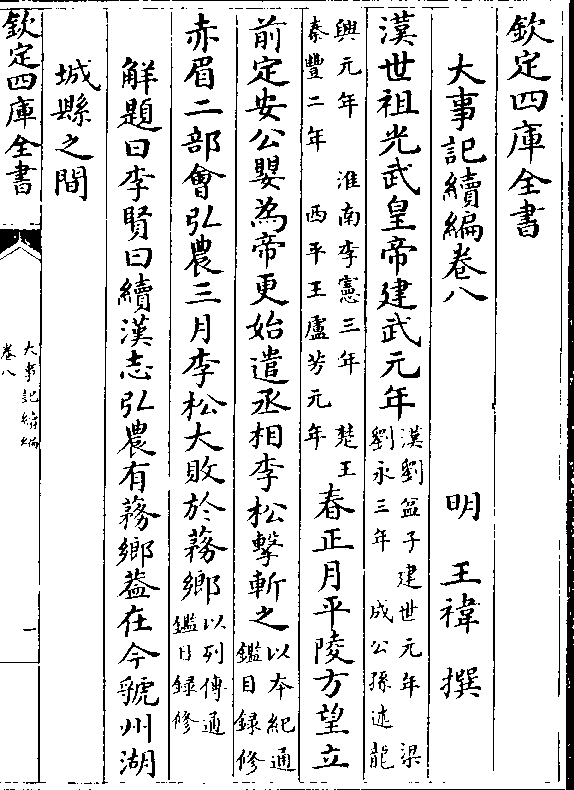 欽定四庫全書
大事記續編卷八
明 王褘 撰
漢世祖光武皇帝建武元年
漢劉盆子建世元年 梁
劉永三年 成公孫述龍
興元年 淮南李憲三年 楚王
秦豐二年 西平王盧芳元年
春正月平陵方望立
前定安公嬰為帝更始遣丞相李松擊斬之
以本紀通
鑑目録修
赤眉二部會弘農三月李松大敗於蓩鄉
以列傳通
鑑目録修
解題曰李賢曰續漢志弘農有蓩鄉葢在今虢州湖
城縣之間
欽定四庫全書
大事記續編
卷八
一